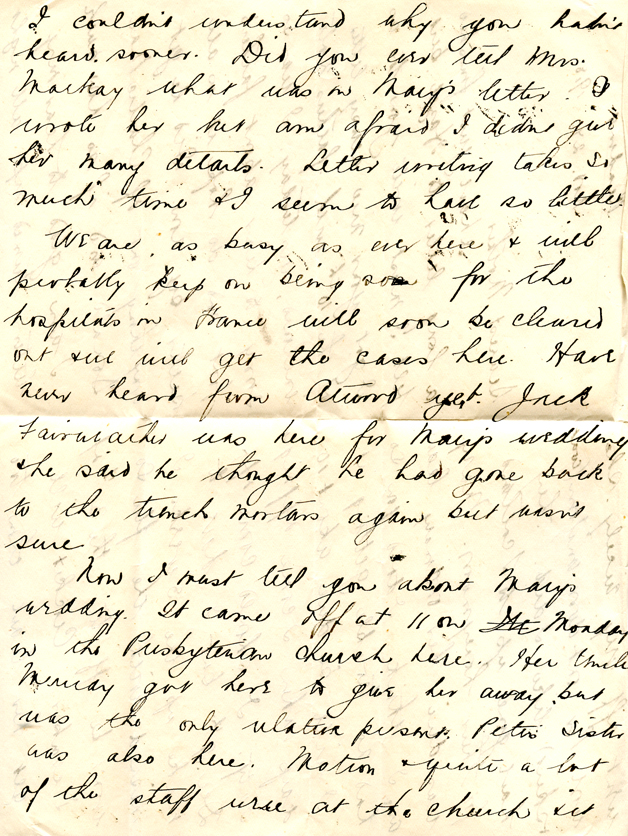 I couldn't understand why you hadn't
heard sooner. Did you ever tell Mrs.
Mackay what was in Mary's letter. I
wrote her but am afraid I didn't give
her many details. Letter writing takes so
much time & I seem to have so little
We are as busy as ever here & will
probably keep on being so for the
hospitals in France will soon be cleared
out & we will get the cases here. Have
never heard from Atwood yet. Jack
Fairweather was here for Mary's wedding
& he said he thought he had gone back
to the trench mortars again but wasn't
sure
Now I must tell you about Mary's
wedding. It came off at 11 on Monday
in the Presbyterian church here. Her Uncle
Murray got here to give her away but
was the only relation present. Peter's Sister
was also here. Matron & quite a lot
of the staff were at the church